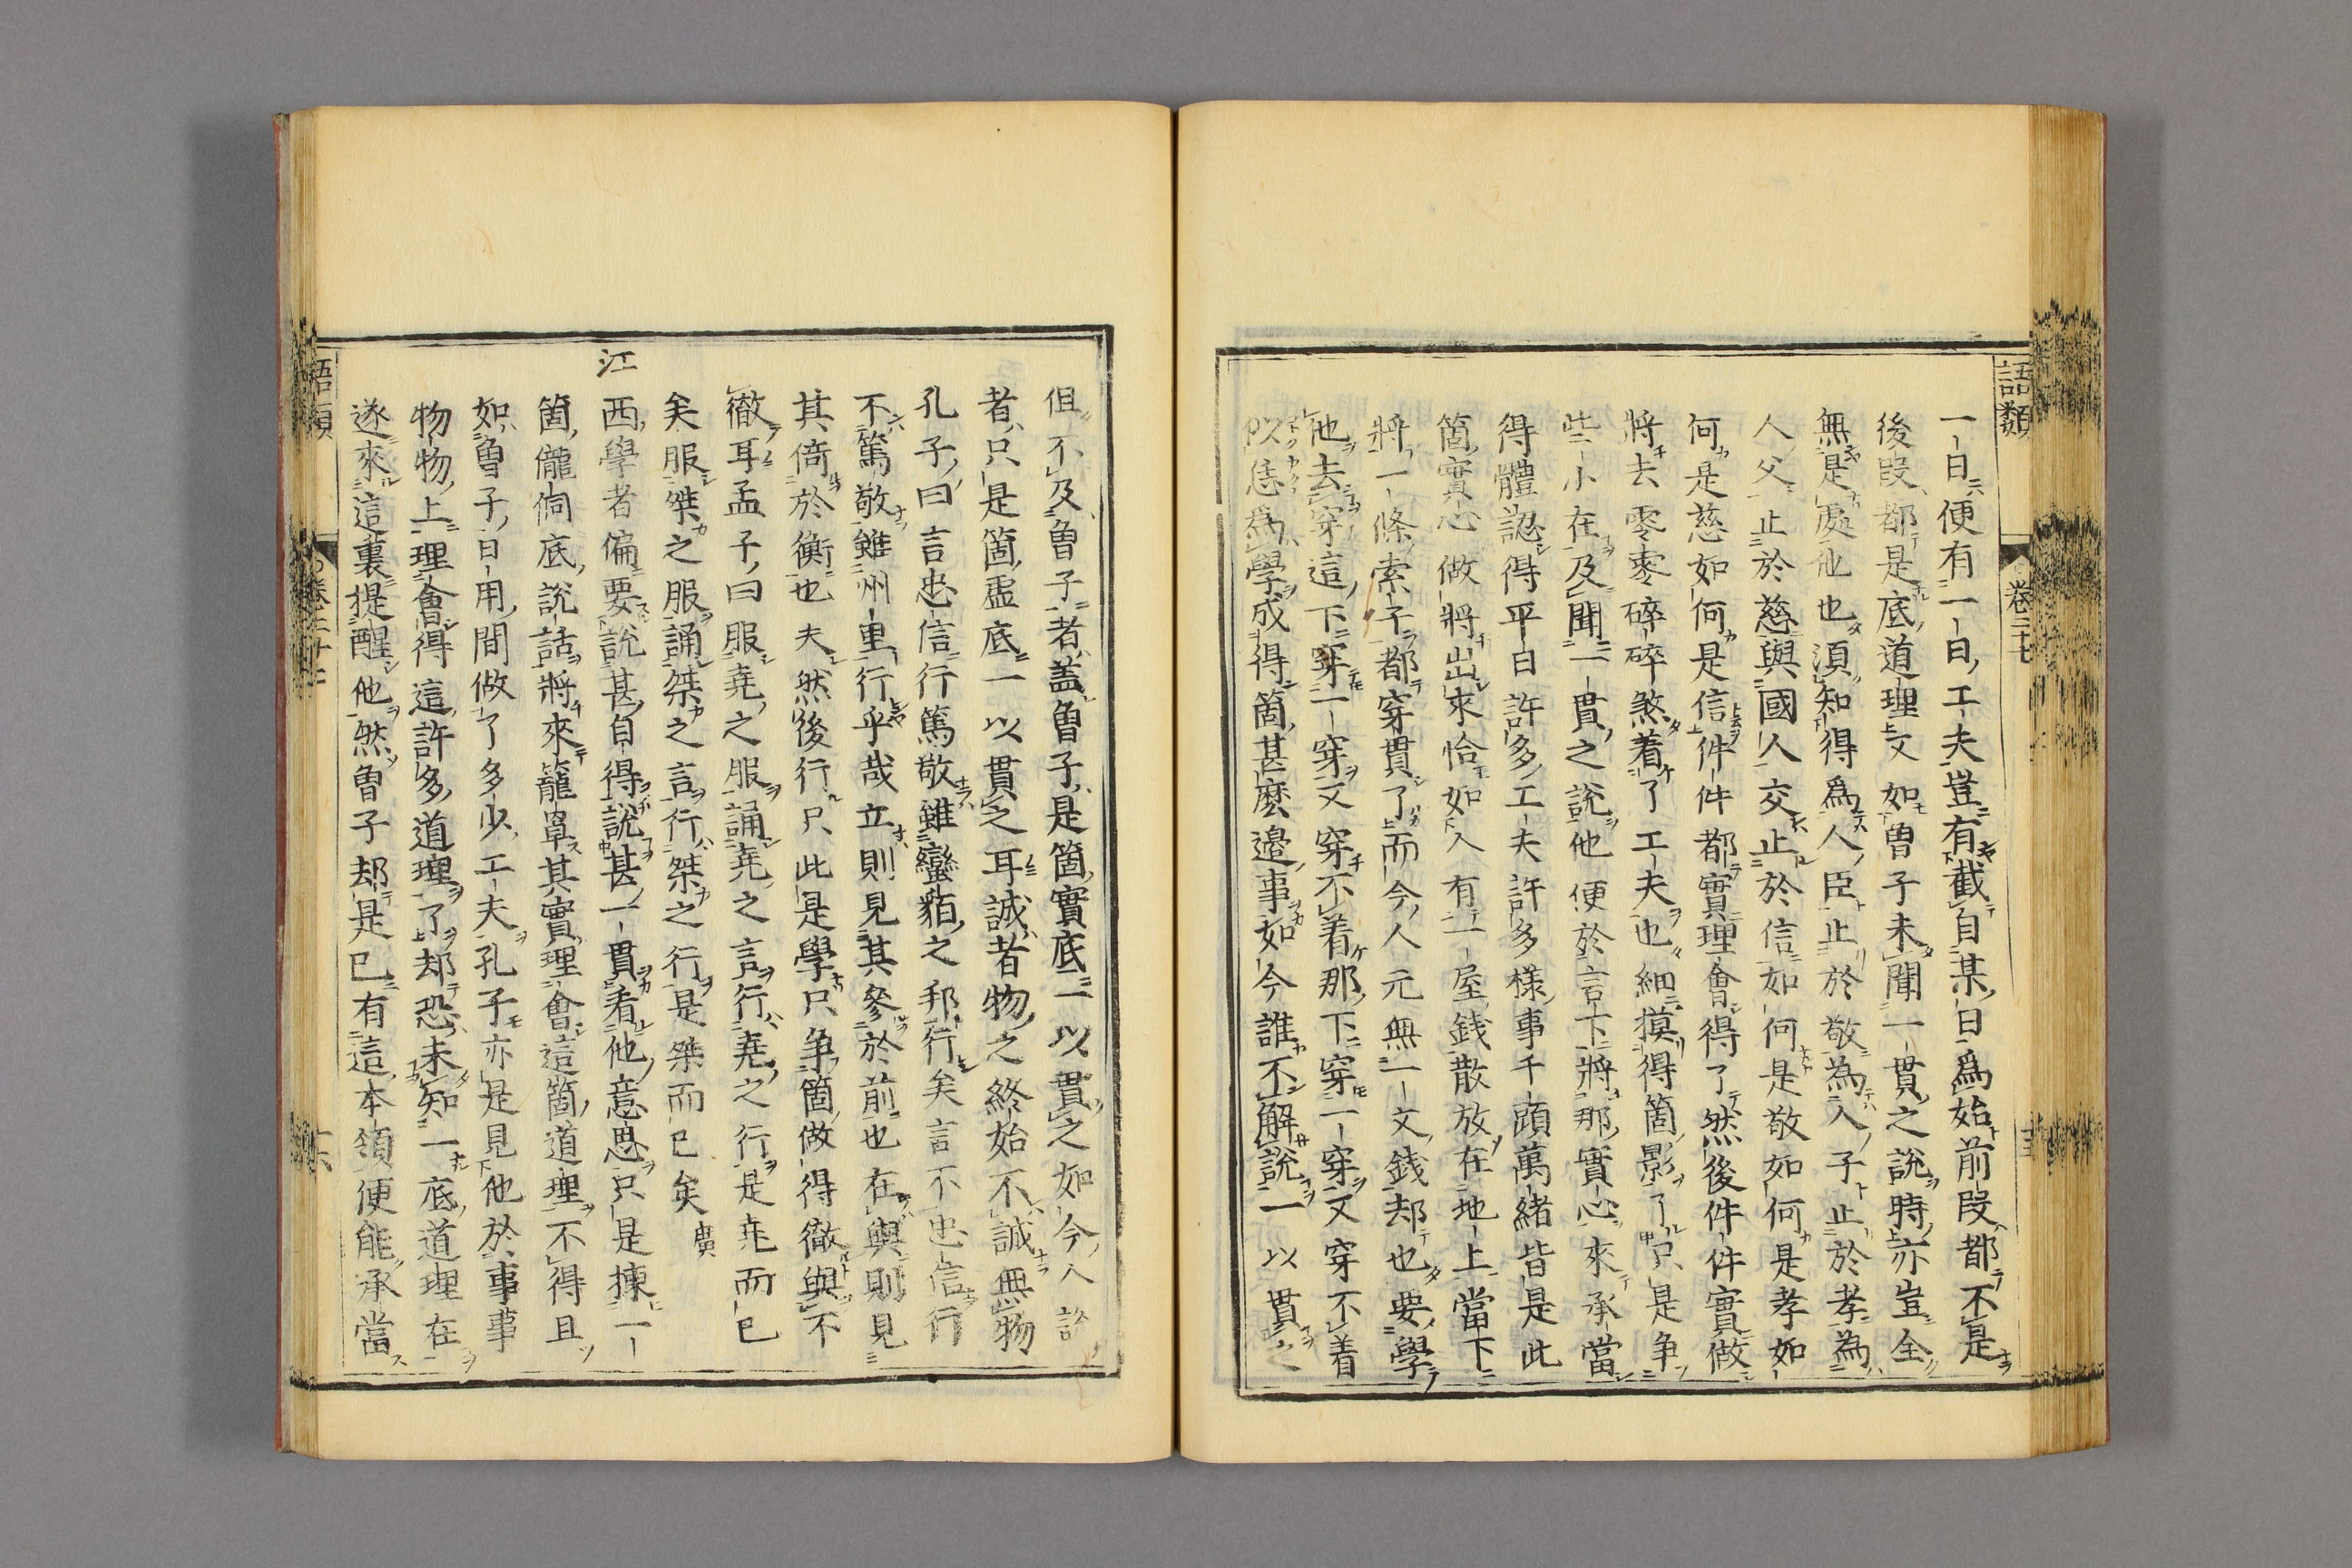 語類
卷二十七
一日便有一日工夫豈有截自某日爲始前段都不是
後段都是底道理又如曽子未聞一貫之說時亦豈全
無是處他也須知得爲人臣止於敬為人子止於孝為
人父止於慈與國人交止於信如何是敬如何是孝如
何是慈如何是信件件都實理會得了然後件件實做
將去零零碎碎煞着了工夫也細摸得箇影了只是争
些小在及聞一貫之說他便於言下將那實心來承當
得體認得平日許多工夫許多樣事千頭萬緒皆是此
箇實心做將出來恰如人有一屋錢散放在地上當下
將一條索子都穿貫了而今人元無一文錢却也要學
他去穿這下穿一穿又穿不着那下穿一穿又穿不着
似恁為學成得箇甚麼邊事如今誰不解說一以貫之
但不及曽子者盖曽子是箇實底一以貫之如今人說
者只是箇虛底一以貫之耳誠者物之終始不誠無物
孔子曰言忠信行篤敬雖蠻貊之邦行矣言不忠信行
不篤敬雖州里行乎哉立則見其參於前也在輿則見
其倚於衡也夫然後行只此是學只争箇做得徹與不
徹耳孟子曰服堯之服誦堯之言行堯之行是堯而已
矣服桀之服誦桀之言行桀之行是桀而已矣 廣
江
西學者偏要說甚自得說甚一貫看他意思只是揀一
箇儱侗底說話將來籠罩其實理會這箇道理不得且
如曽子日用間做了多少工夫孔子亦是見他於事事
物物上理會得這許多道理了却恐未知一底道理在
遂來這裏提醒他然曽子却是已有這本領便能承當
語類
卷二十七
十六